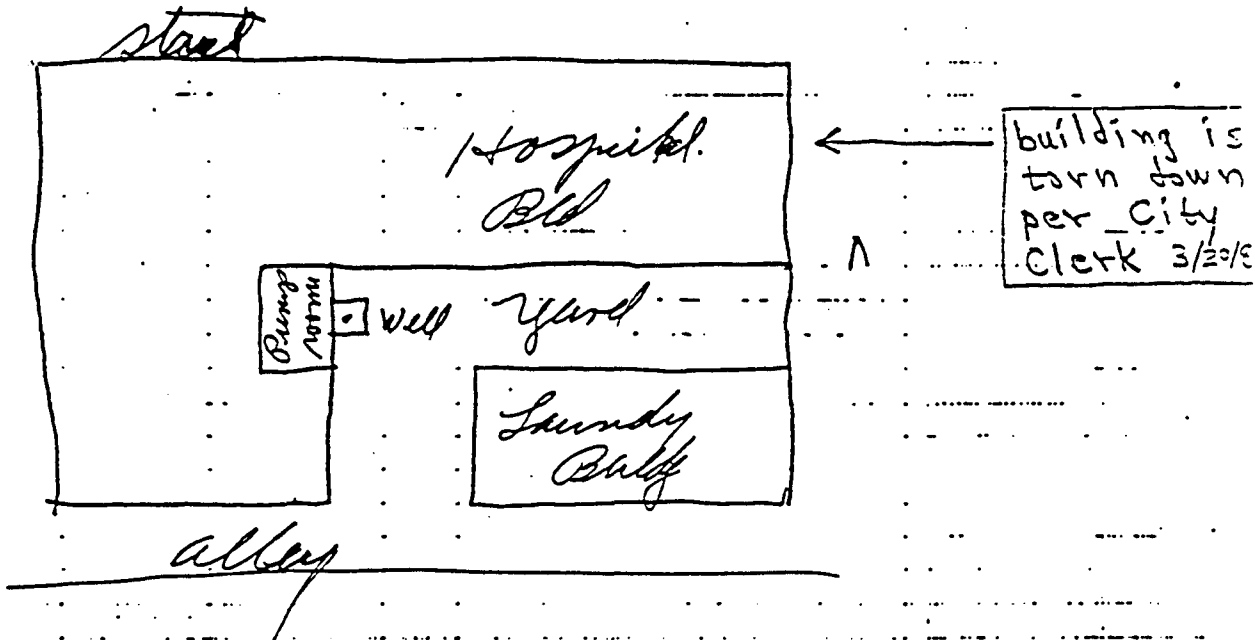 Hospital.
Bld
building is
torn down
per City
Clerk 3/20/8
Pump
room
Well
Yard
Laundy
Buldg
alley